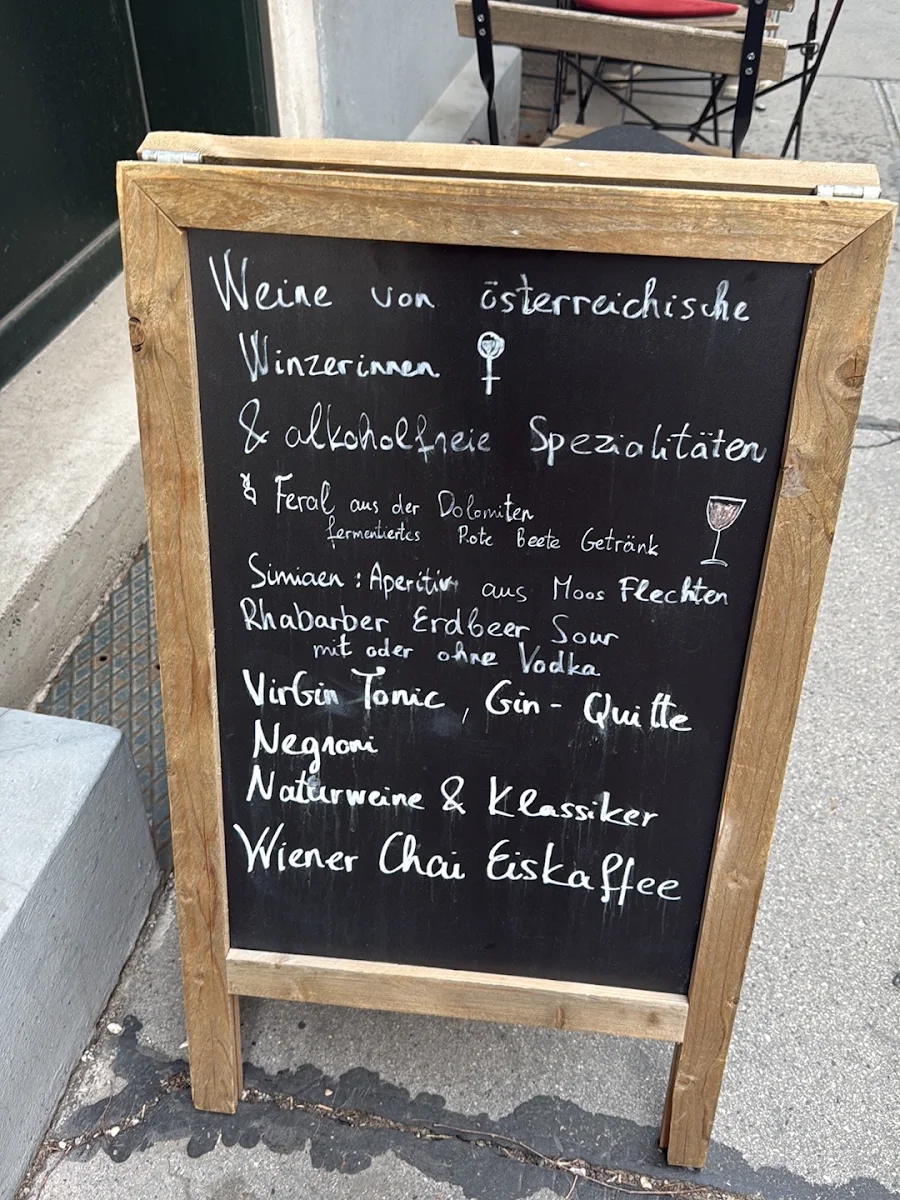 Weine von österreichische
Winzerinnen
& alkoholfreie Spezialitäten
Feral aus der Dolomiten
fermentiertes Rote Beete Getränk
Simiaen : Aperitiv aus Moos Flechten
Rhabarber Erdbeer Sour
mit oder ohne Vodka
VirGin Tonic, Gin - Quitte
Negroni
Naturweine & Klassiker
Wiener Chai Eiskaffee